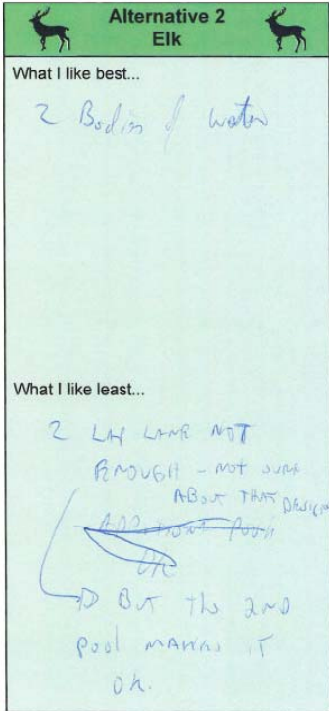 Alternative 2
Elk
What I like best...
2 Bodies of water
What I like least...
2 LAP LANE NOT
ENOUGH - NOT SURE
ABOUT THAT DESIGN
ADDITIONAL POOL
OK
BUT THE 2ND
POOL MAKES IT
OK.